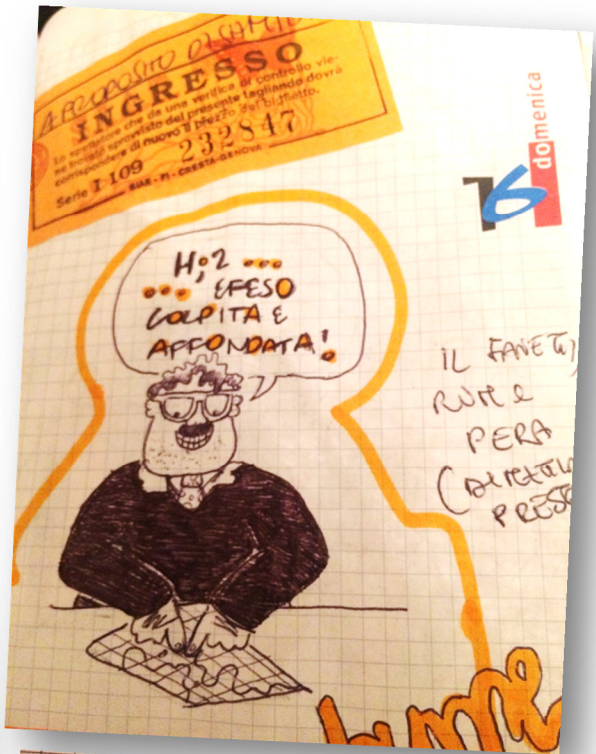 A PROPOSITO DI SAPERE
INGRESSO
Lo spettatore che da una verifica di controllo vie-
ne trovato sprovvisto del presente tagliando dovrà
corrispondere di nuovo il prezzo del biglietto.
Serie I 109 232847
SIAE - FI - CRESTA-GENOVA
16 domenica
H;2 ...
... EFESO
COLPITA E
AFFONDATA!
IL
RUM e
PERA